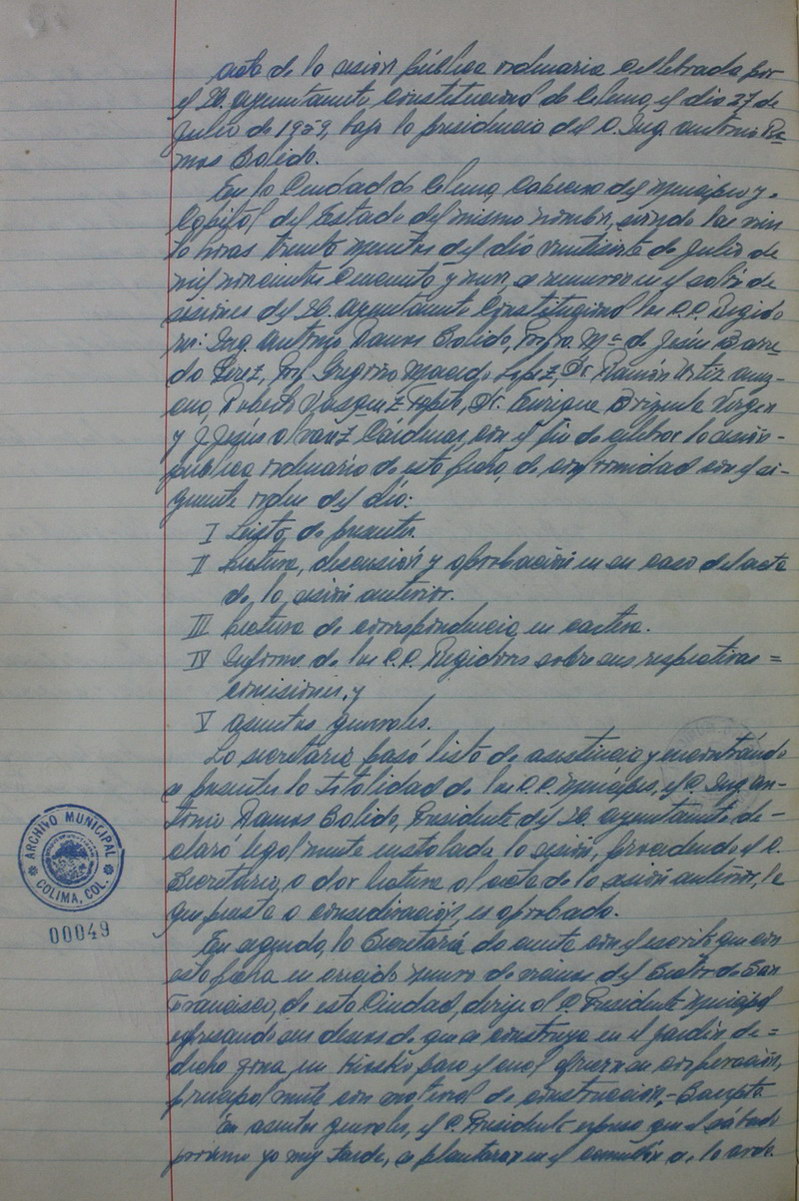 acta de la sesión pública ordinaria celebrada por
el H. ayuntamiento Constitucional de Colima, el día 27 de
Julio de 1959, bajo la presidencia del C. Ing. Antonio Ra-
mos Salido.
En la Ciudad de Colima, Cabecera del Municipio y
Capital del Estado del mismo nombre, siendo las vein
te horas treinta minutos del día veintisiete de Julio de
mil novecientos cincuenta y nueve, se reunieron en el salón de
sesiones del H. Ayuntamiento Constitucional los CC. Regido
res: Ing. Antonio Ramos Salido, Profra. Ma. de Jesús
Pérez, Prof. Gregorio Macedo López, Dr. Ramón Ortiz
Roberto Vásquez Dr. Enrique Brizuela Virgen
y J. Jesús Alvarez Cárdenas, con el fin de celebrar la sesión
pública ordinaria de esta fecha, de conformidad con el si-
guiente orden del día:
I Lista de presentes.
II Lectura, discusión y aprobación en su caso del acta
de la sesión anterior.
III Lectura de correspondencia en cartera.
IV Informe de los C.C. Regidores sobre sus respectivas =
comisiones, y
V asuntos generales.
La secretaría pasó lista de asistencia y encontrándo
se presentes la totalidad de los C.C. Munícipes, el C. Ing. An-
tonio Ramos Salido, Presidente del H. ayuntamiento de-
claro legalmente instalada la sesión, procediendo el C.
Secretario, a dar lectura al acta de la sesión anterior, la
que puesta a consideración, es aprobada.
En seguida, la Secretaría da cuenta con el escrito que con
esta fecha un crecido número de vecinos del Barrio de San
Francisco, de esta Ciudad, dirige al C. Presidente Municipal
expresando sus deseos de que se construya en el jardín de =
dicha zona, un Kiosko para el cual ofrecen su cooperación,
principalmente con material de construcción.- Se acepta
En asuntos generales, el C. Presidente expresa que el sábado
próximo ya muy tarde, se plantaron en el camellón de la
ARCHIVO MUNICIPAL
COLIMA, COL.
00049